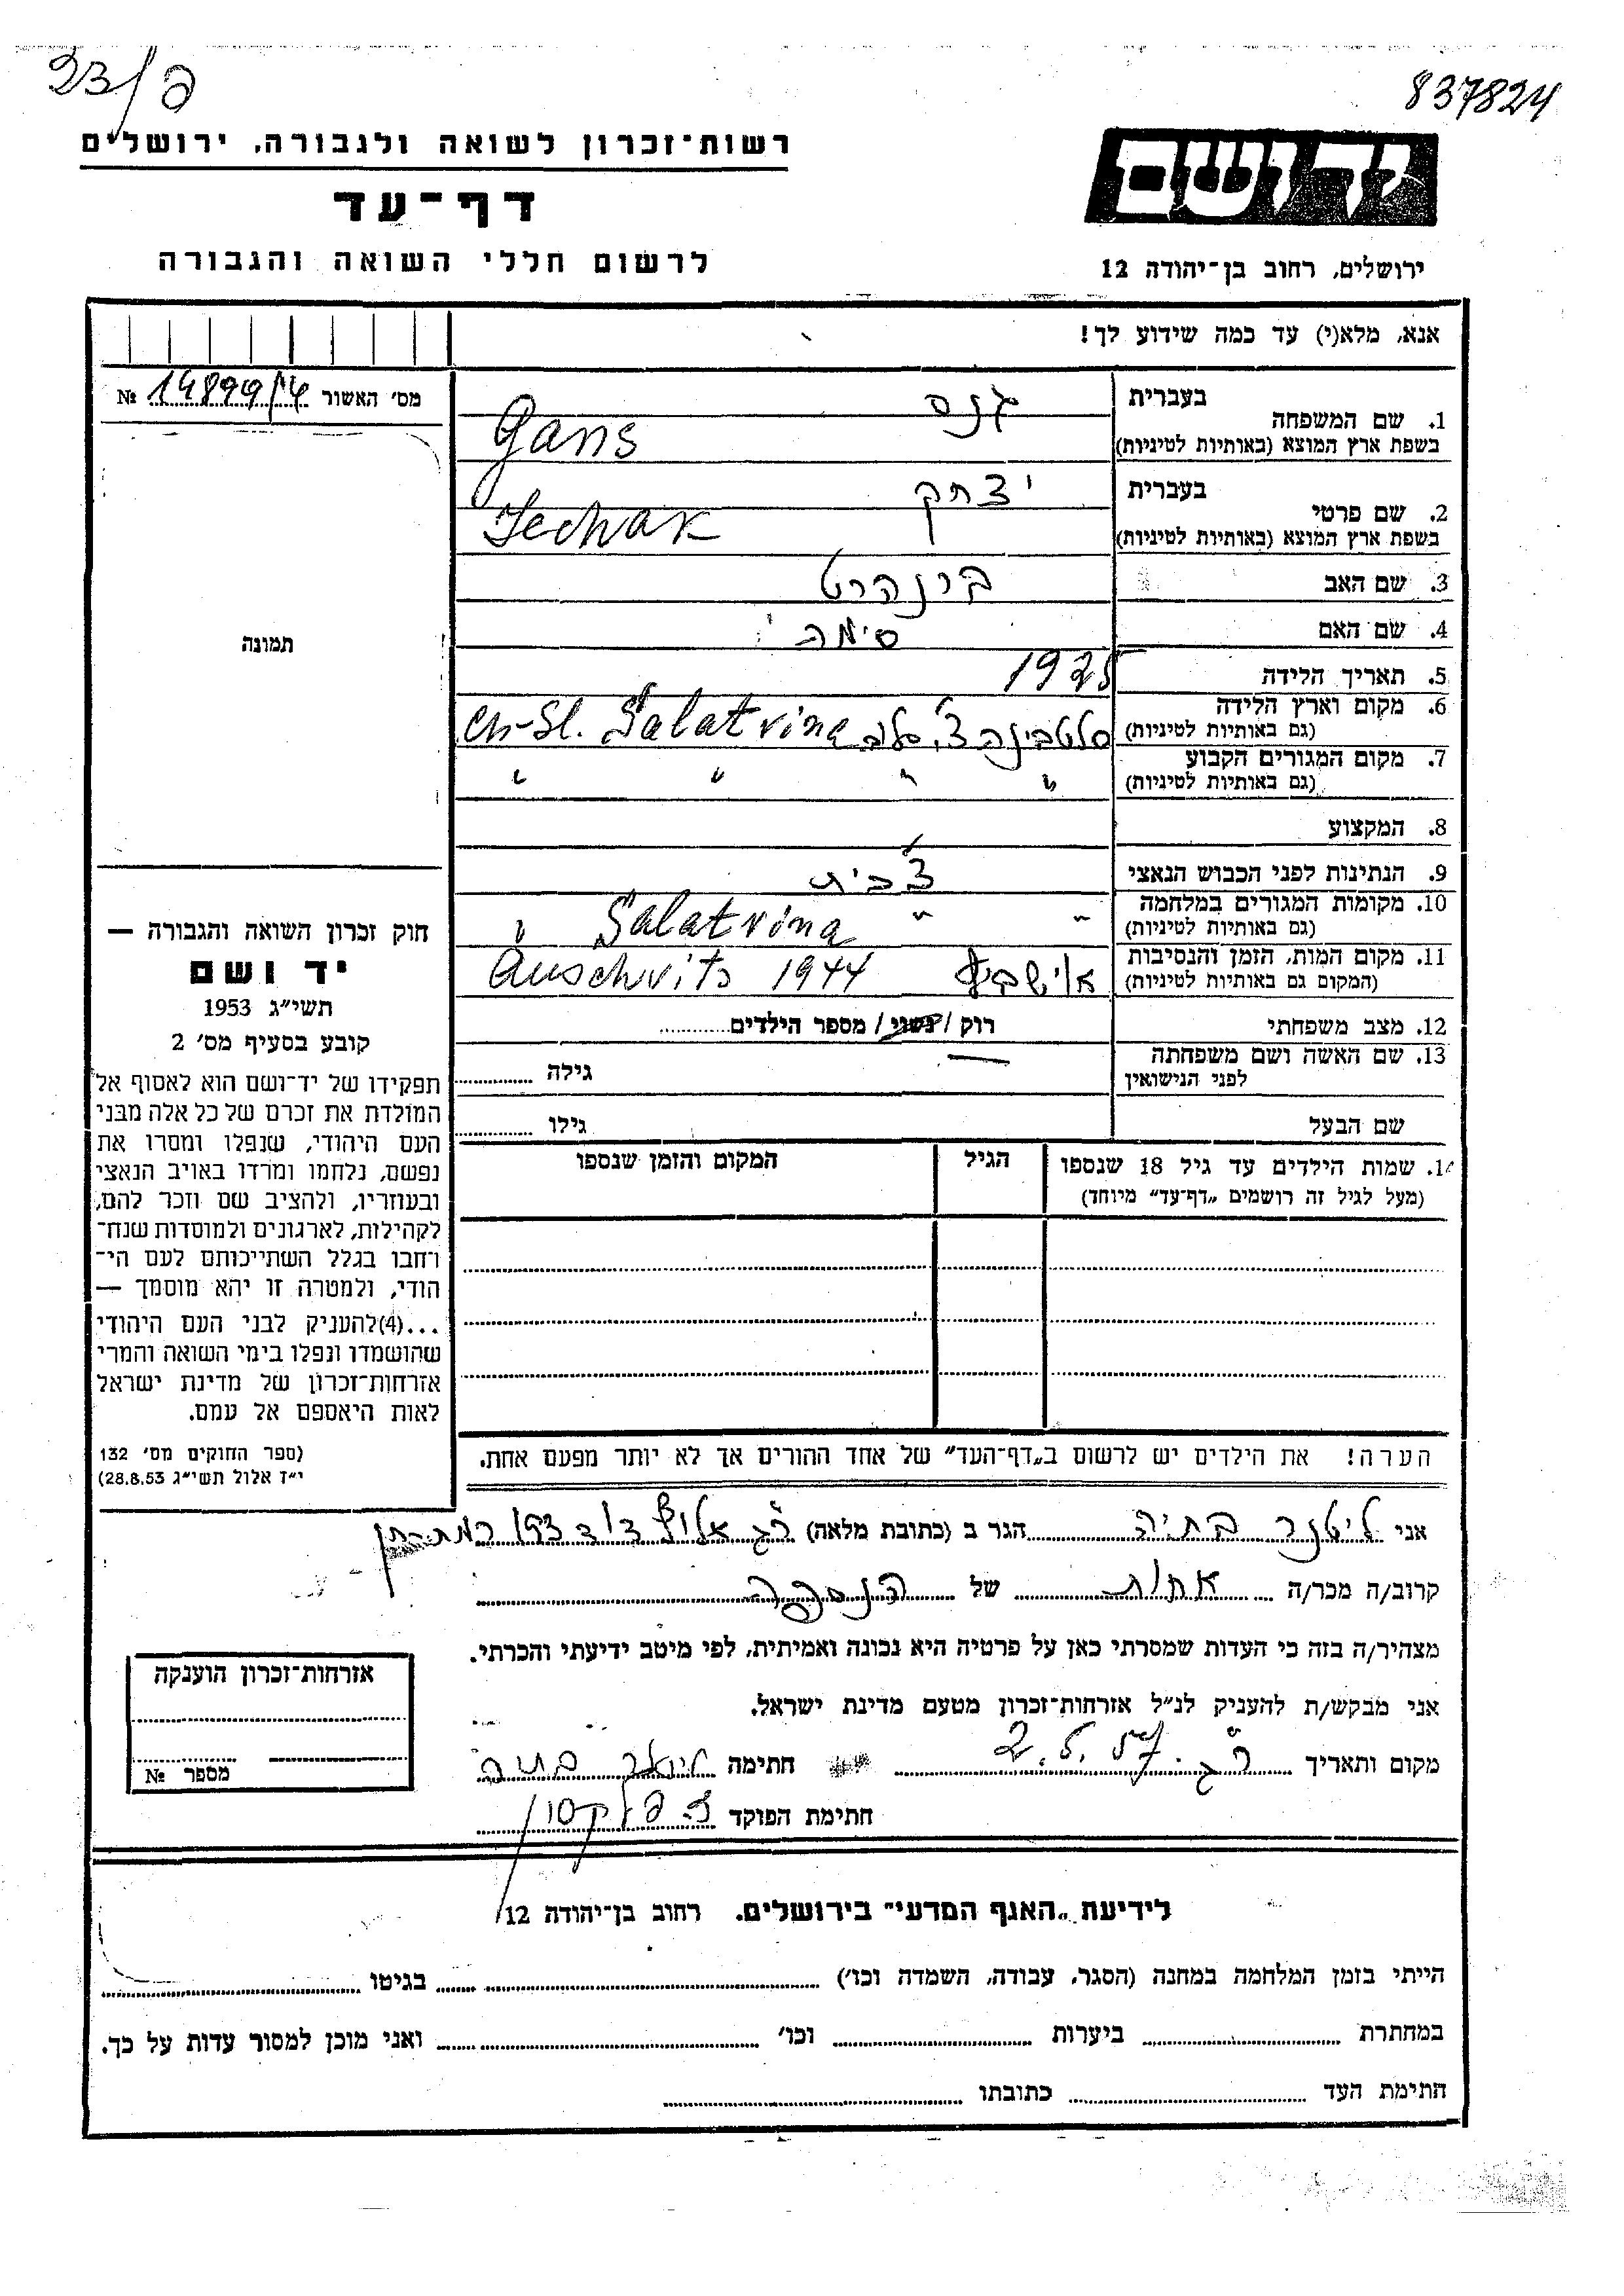 837824
23/פ
יד ושם
ירושלים, רחוב בן־יהודה 12
רשות־זכרון לשואה ולגבורה, ירושלים
דף־עד
לרשום חללי השואה והגבורה
אנא, מלא(י) עד כמה שידוע לך!
מס׳ האשור 14899/4 №
תמונה
1. שם המשפחה בעברית גנס
בשפת ארץ המוצא (באותיות לטיניות) Gans
2. שם פרטי בעברית יצחק
בשפת ארץ המוצא (באותיות לטיניות) Jechak
3. שם האב
4. שם האם סימה
5. תאריך הלידה 1925
6. מקום וארץ הלידה
(גם באותיות לטיניות) סלטבינה צ׳. סלוב Ch-Sl. Salatvina
7. מקום המגורים הקבוע
(גם באותיות לטיניות) " " " "
8. המקצוע
9. הנתינות לפני הכבוש הנאצי צ׳כית
10. מקומות המגורים במלחמה
(גם באותיות לטיניות) " " Salatvina "
11. מקום המות, הזמן והנסיבות
(המקום גם באותיות לטיניות) אושביץ Auschvits 1944
12. מצב משפחתי רוק / נשוי / מספר הילדים
13. שם האשה ושם משפחתה
לפני הנישואין — גילה
שם הבעל גילו
14. שמות הילדים עד גיל 18 שנספו
(מעל לגיל זה רושמים „דף־עד״ מיוחד)
הגיל
המקום והזמן שנספו
הערה! את הילדים יש לרשום ב„דף־העד״ של אחד ההורים אך לא יותר מפעם אחת.
חוק זכרון השואה והגבורה —
יד ושם
תשי״ג 1953
קובע בסעיף מס׳ 2
תפקידו של יד־ושם הוא לאסוף אל
המולדת את זכרם של כל אלה מבני
העם היהודי, שנפלו ומסרו את
נפשם, נלחמו ומרדו באויב הנאצי
ובעוזריו, ולהציב שם וזכר להם,
לקהילות, לארגונים ולמוסדות שנח־
רחבו בגלל השתייכותם לעם הי־
הודי, ולמטרה זו יהא מוסמך —
...(4) להעניק לבני העם היהודי
שהושמדו ונפלו בימי השואה והמרי
אזרחות־זכרון של מדינת ישראל
לאות היאספם אל עמם.
(ספר החוקים מס׳ 132
י״ז אלול תשי״ג 28.8.53)
אני ליטנר בתיה הגר ב (כתובת מלאה) ר״ג אלוף דוד 153 רמת חן
קרוב/ה מכר/ה אחות של הנספה
מצהיר/ה בזה כי העדות שמסרתי כאן על פרטיה היא נכונה ואמיתית, לפי מיטב ידיעתי והכרתי.
אני מבקש/ת להעניק לנ״ל אזרחות־זכרון מטעם מדינת ישראל.
מקום ותאריך ר״ג. 2.5.57 חתימה ליטנר בתיה
חתימת הפוקד
אזרחות־זכרון הוענקה
מספר №
לידיעת „האגף המדעי״ בירושלים, רחוב בן־יהודה 12
הייתי בזמן המלחמה במחנה (הסגר, עבודה, השמדה וכו׳) בגיטו
במחתרת ביערות וכו׳ ואני מוכן למסור עדות על כך.
חתימת העד כתובתו